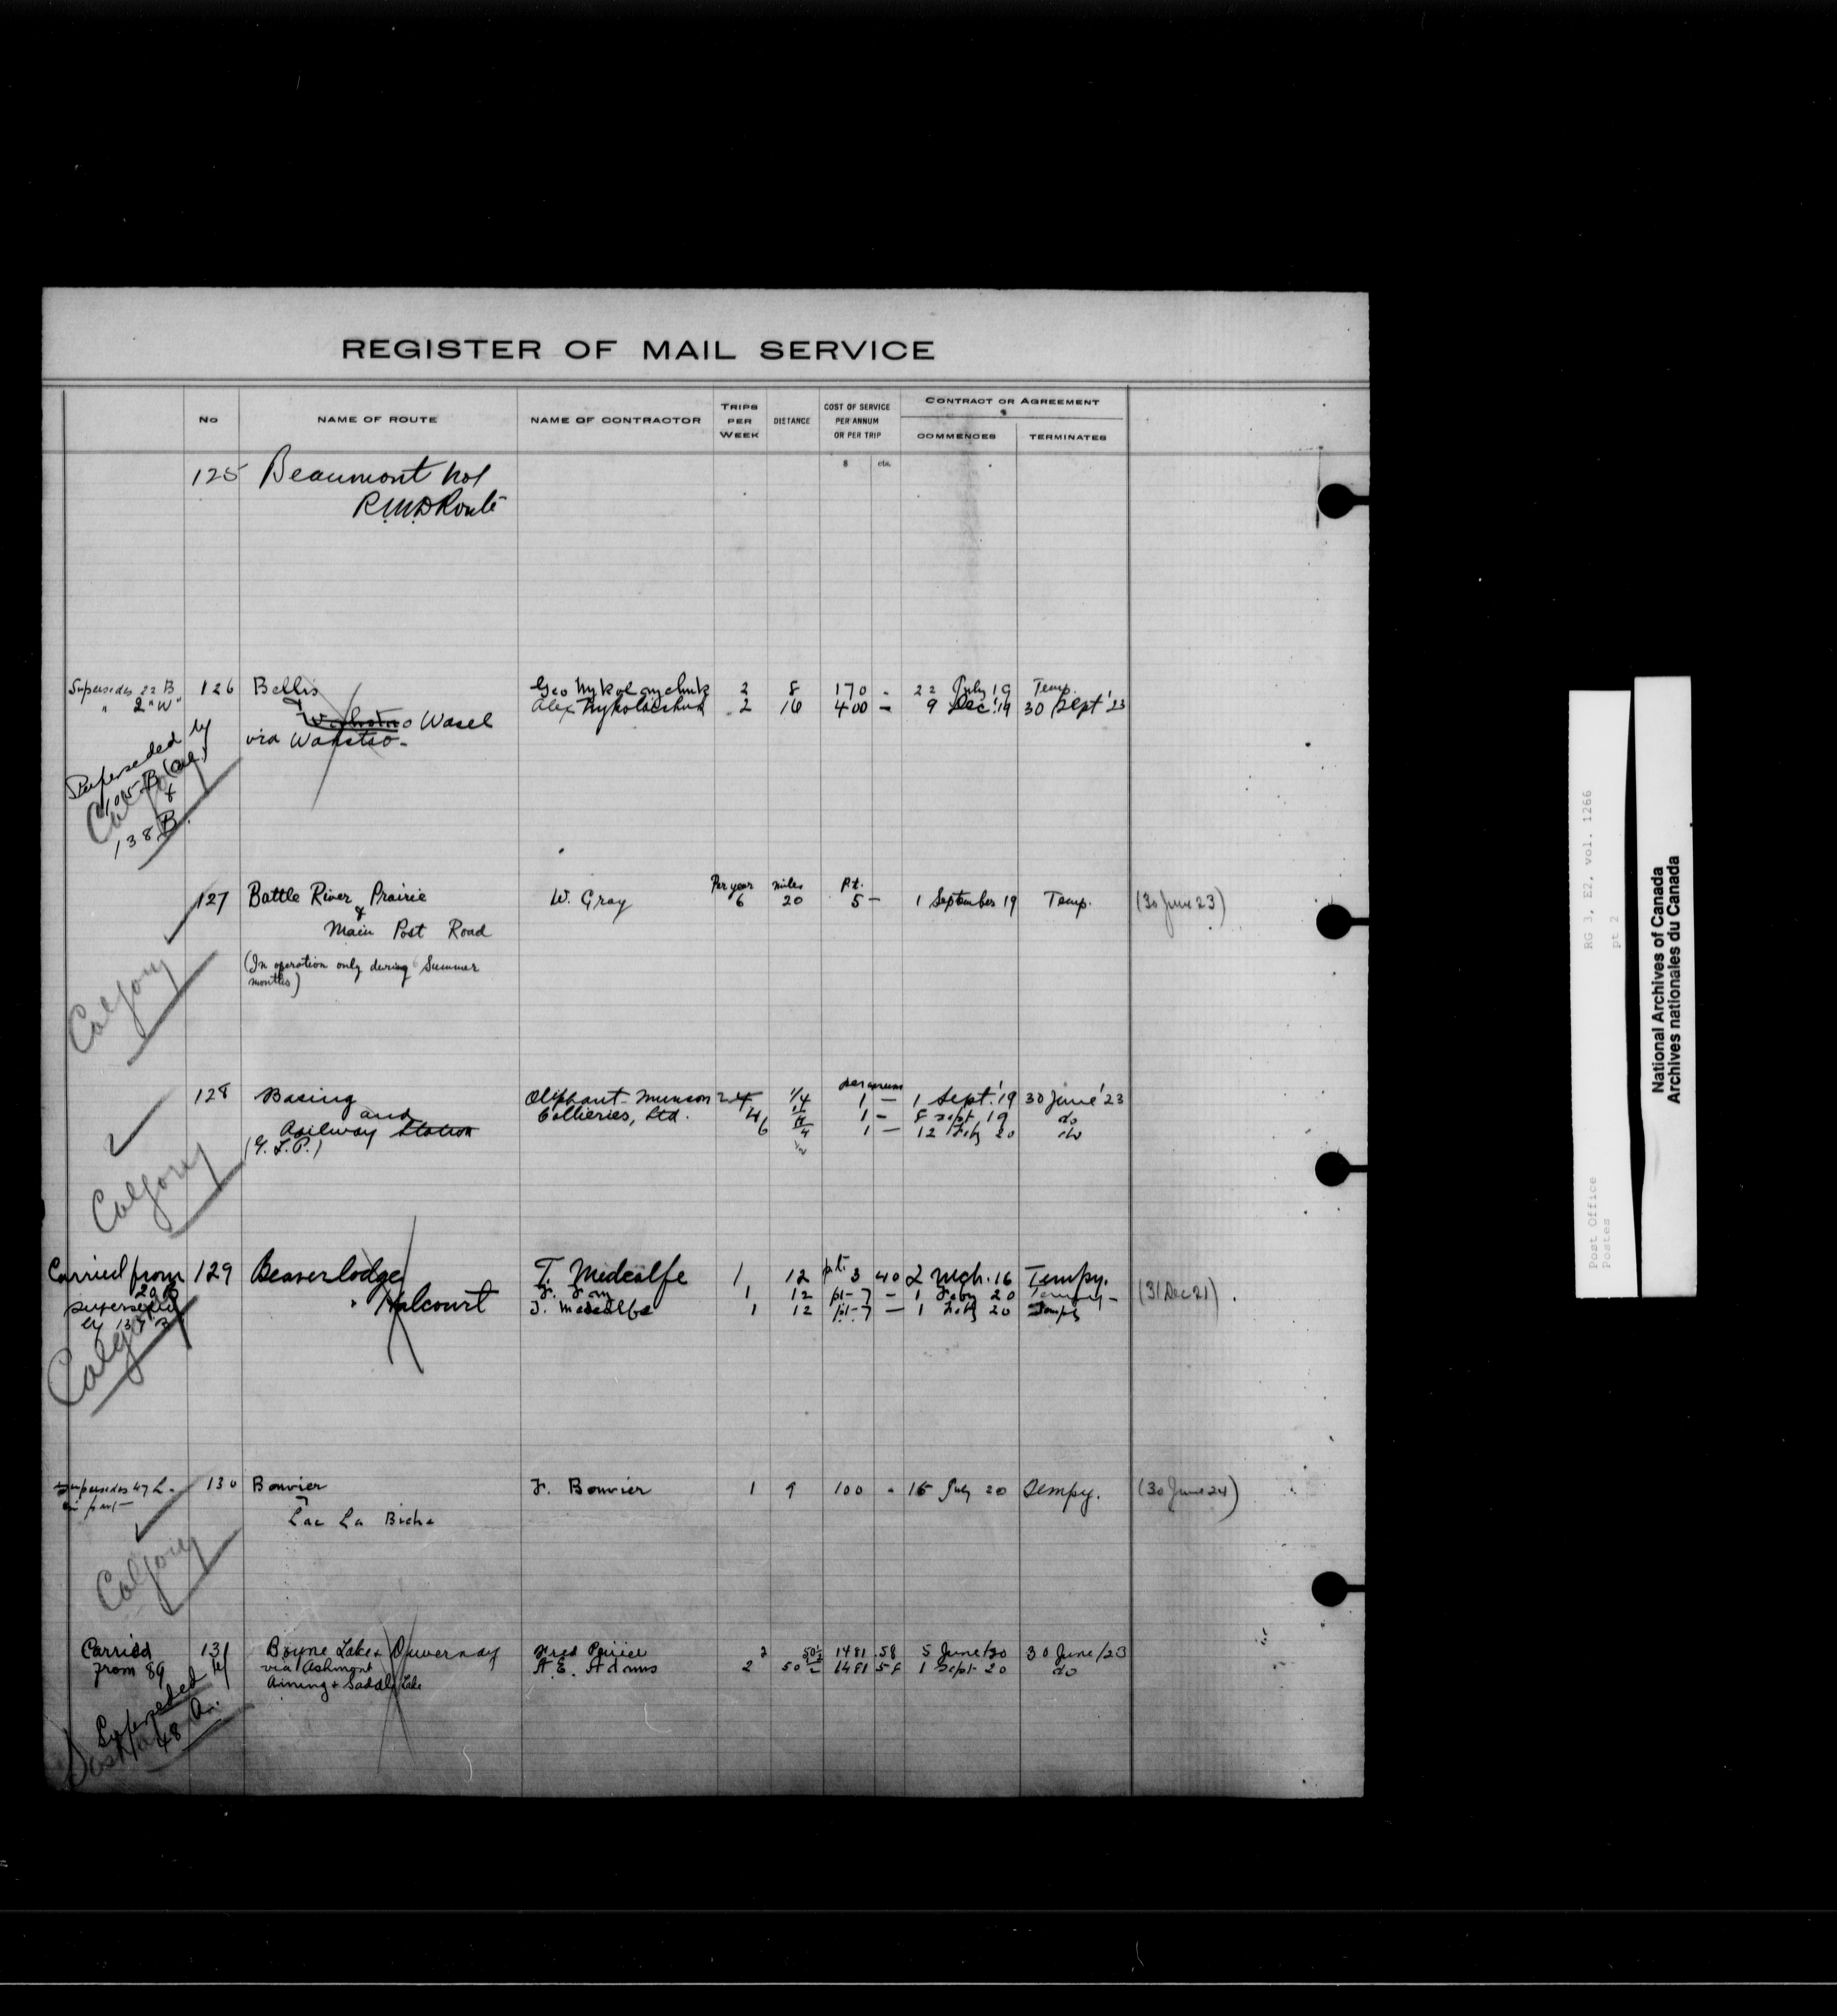 REGISTER OF MAIL SERVICE
No NAME OF ROUTE NAME OF CONTRACTOR TRIPS PER WEEK DISTANCE COST OF SERVICE PER ANNUM OR PER TRIP CONTRACT OR AGREEMENT COMMENCES TERMINATES
$ cts.
125 Beaumont No 1
R.M.D Route
Supersedes 22 B 126 Bellis Geo Nykolaychuk 2 8 170 - 22 July 19 Temp.
" 2 "W" & Alex Nykolaichuk 2 16 400 - 9 Dec. '19 30 Sept '23
Wasel
via Wahstao -
Superseded by
105 B (Cal.)
&
138 B.
Calgary
Per year miles P.t.
127 Battle River Prairie W. Gray 6 20 5 - 1 September 19 Temp. (30 June 23)
&
Main Post Road
(In operation only during Summer
months)
Calgary
per annum
128 Basing Oliphant-Munson 24 1/4 1 - 1 Sept. '19 30 June '23
and Collieries, Ltd. 4 1 - 8 Sept. 19 do
Railway Station 6 1 - 12 Feby 20 do
(G.T.P.)
Calgary
Carried from 129 Beaverlodge T. Medcalfe 1 12 p.t. 3 40 2 Mch. 16 Tempy.
20 B & Halcourt 1 12 pt- 7 - 1 Feby 20 Tempy - (31 Dec 21)
superseded T. Medcalfe 1 12 p.t. 7 - 1 Feby 20 Tempy
by 137 B
Calgary
Supersedes 47 L - 130 Bouvier F. Bouvier 1 9 100 - 15 July 20 Tempy. (30 June 24)
in part - &
Lac La Biche
Calgary
Carried 131 Boyne Lake & Duvernay 2 50½ 1481 58 5 June/20 30 June/23
from 89 via Ashmont A. E. Adams 2 50½ 1481 58 1 Sept- 20 do
+ Saddle Lake
Superseded by
48 A.
RG 3, E2, vol. 1266
pt 2
Post Office
Postes
National Archives of Canada
Archives nationales du Canada